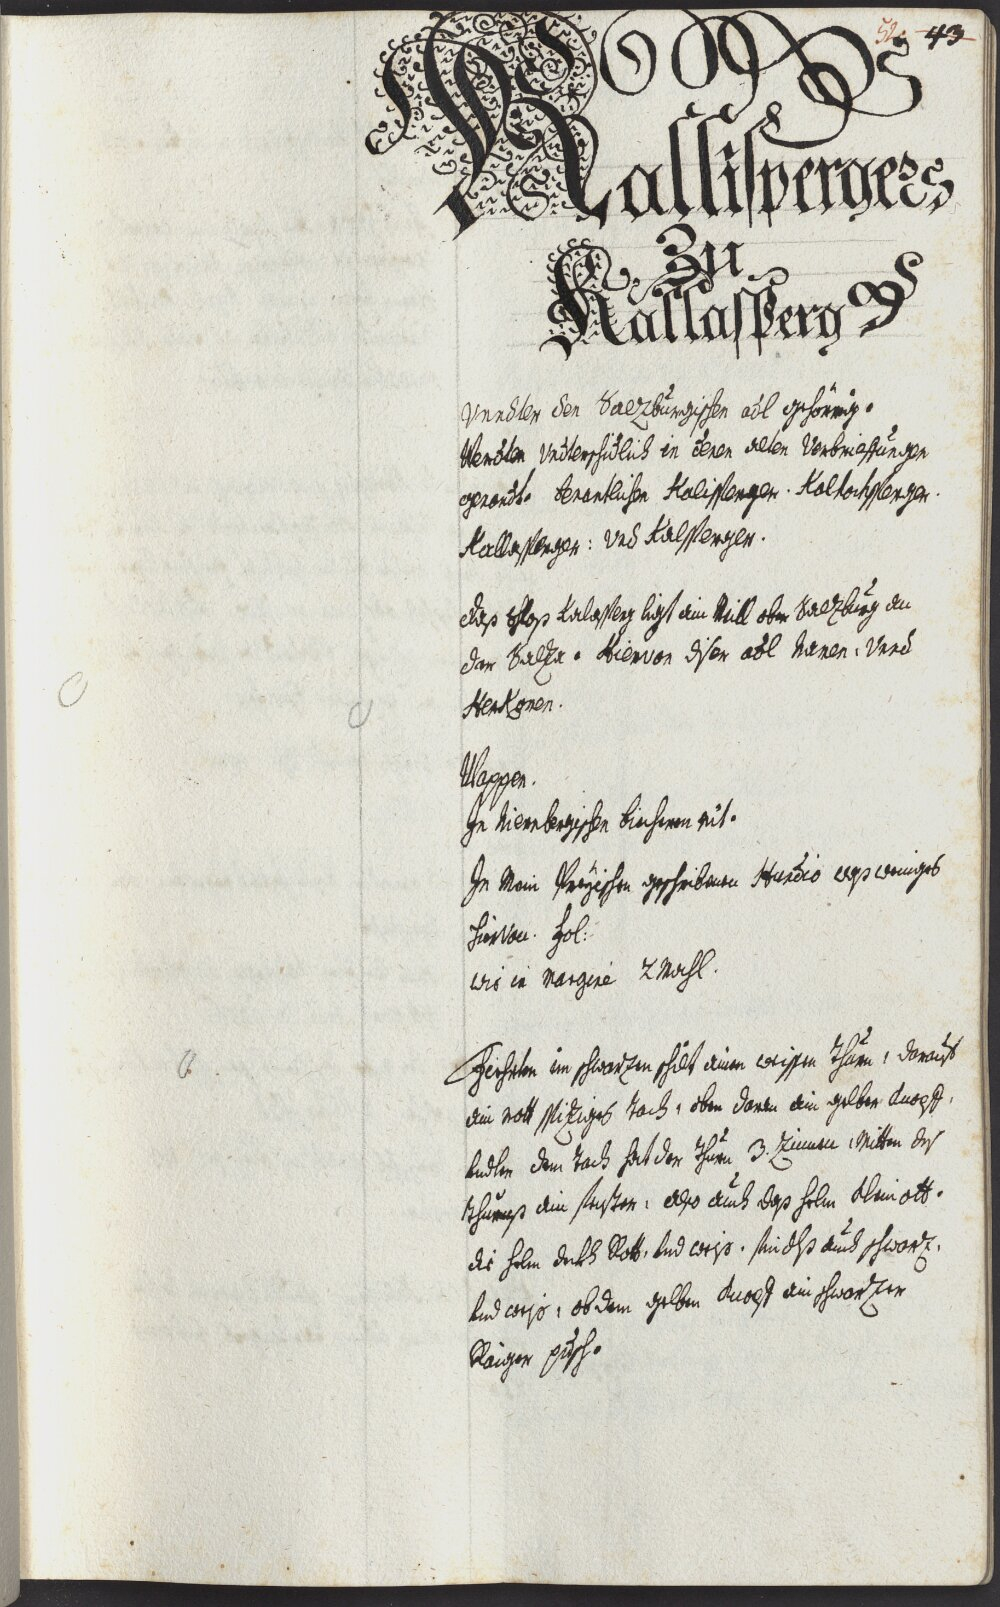 52. 43
Kallisperger
Zu
Kallasperg
Unndter den Salzburgischen adl gehörrig.
Werden Underschidlich in denen alten Verbrieffungen
genandt. benantlichen Kalisperger. Kaltochsperger.
Kallasperger: und Kalsperger.
daß schloß Kalasperg ligt ain Mill ober Salzburg an
der Salza. Hiervon diser adl Namen, Unnd
Herkomen.
Wappen.
In Niernbergischen biechern nit.
In Mein Preyischen geschribnen Hundio waß weniges
hiervon. fol:
wie in margine 2 Mahl.
Fiehrten im schwarzen schilt ainen weissen Thurn, darauf
ain rott spiziges tach, oben daran ain gelber knopff,
under dem tach hat der Thurn 3. Zinnen, Mitten des
thurnß ain fenster, also auch daß helm kleinott.
die helm deckh Rott, und weiß. sindtß auch schwarz,
und weiß, ob dem gelben knopff ain schwarzer
Raiger pusch.